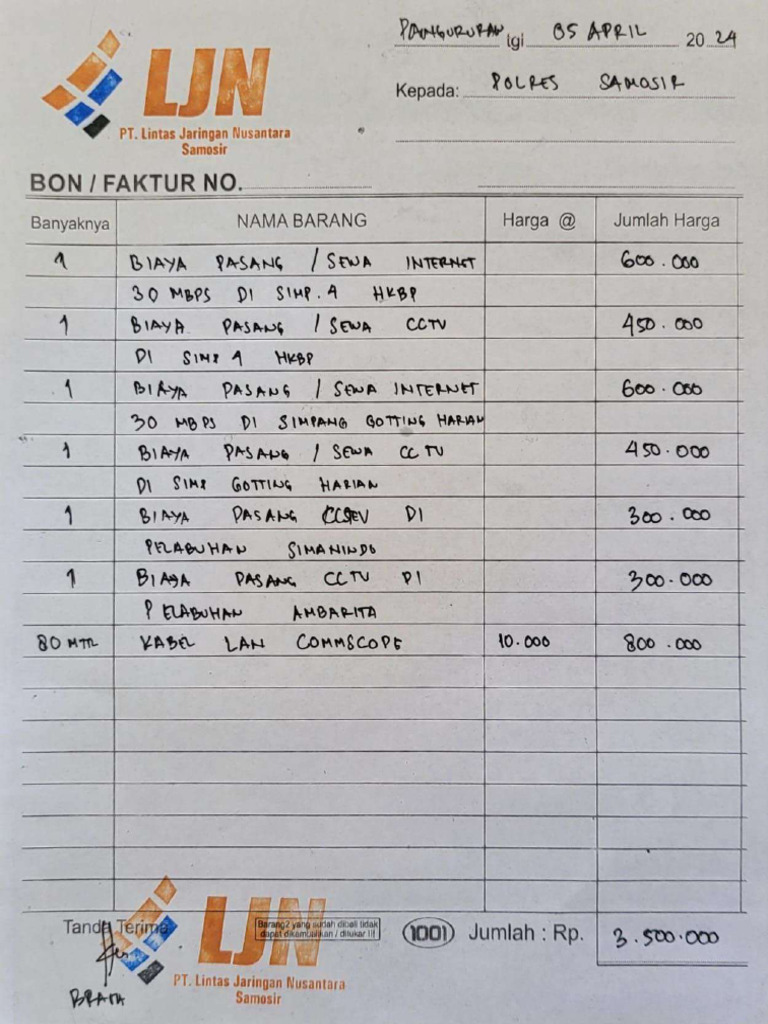 LJN
PT. Lintas Jaringan Nusantara
Samosir
PANGURURAN tgl 05 APRIL 2024
Kepada: POLRES SAMOSIR
BON / FAKTUR NO.
Banyaknya NAMA BARANG Harga @ Jumlah Harga
1 BIAYA PASANG / SEWA INTERNET 600.000
30 MBPS DI SIMP. 4 HKBP
1 BIAYA PASANG / SEWA CCTV 450.000
DI SIMP 4 HKBP
1 BIAYA PASANG / SEWA INTERNET 600.000
30 MBPS DI SIMPANG GOTTING HARIAN
1 BIAYA PASANG / SEWA CCTV 450.000
DI SIMP GOTTING HARIAN
1 BIAYA PASANG DI 300.000
PELABUHAN SIMANINDO
1 BIAYA PASANG CCTV DI 300.000
PELABUHAN AMBARITA
80 MTR KABEL LAN COMMSCOPE 10.000 800.000
Tanda Terima
Barang2 yang sudah dibeli tidak
dapat dikembalikan / ditukar !!!
1001 Jumlah : Rp. 3.500.000
LJN
PT. Lintas Jaringan Nusantara
Samosir